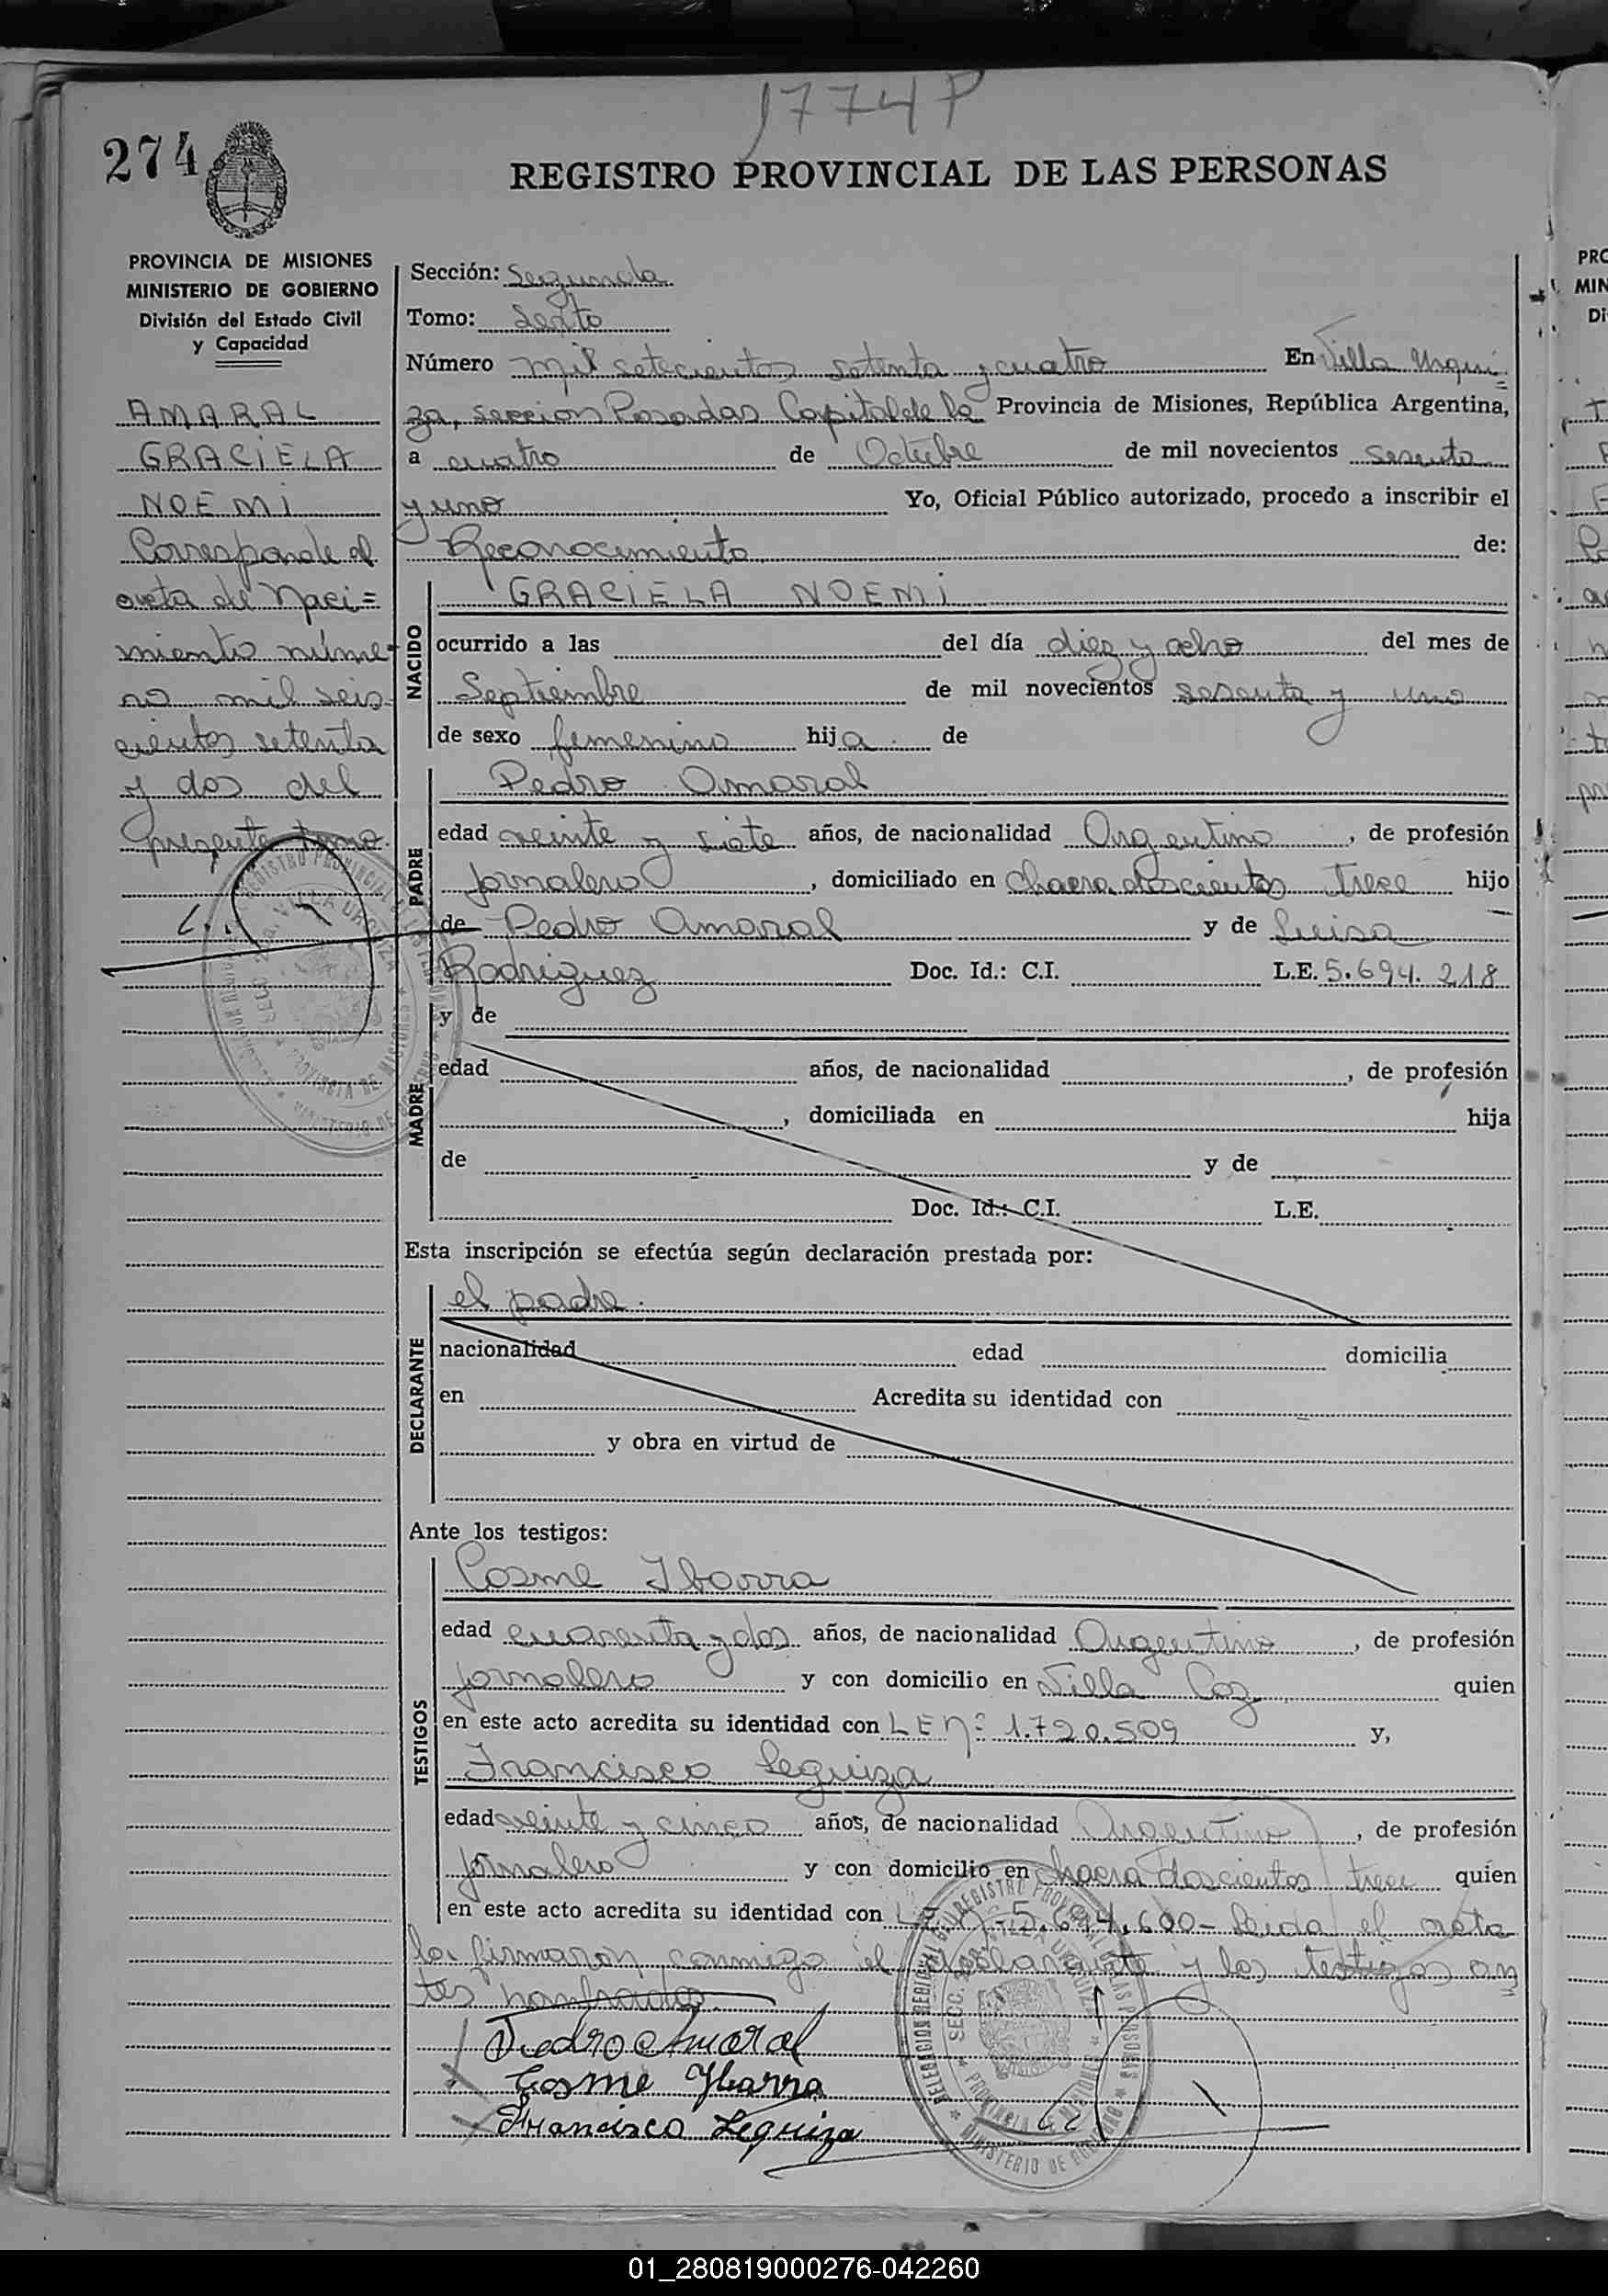 1774P
274
REGISTRO PROVINCIAL DE LAS PERSONAS
PROVINCIA DE MISIONES
MINISTERIO DE GOBIERNO
División del Estado Civil
y Capacidad
AMARAL
GRACIELA
NOEMI
Corresponde al
acta de Naci=
miento núme-
ro mil seis-
cientos setenta
y dos del
presente tomo.
Sección: Segunda
Tomo: Sexto
Número mil setecientos setenta y cuatro En Villa Urqui=
za, sección Posadas Capital de la Provincia de Misiones, República Argentina,
a cuatro de Octubre de mil novecientos sesenta
y uno Yo, Oficial Público autorizado, procedo a inscribir el
Reconocimiento de:
NACIDO
GRACIELA NOEMI
ocurrido a las del día diez y ocho del mes de
Septiembre de mil novecientos sesenta y uno
de sexo femenino hija de
PADRE
Pedro Amaral
edad veinte y siete años, de nacionalidad Argentino, de profesión
jornalero, domiciliado en chacra doscientos trece hijo
de Pedro Amaral y de Luisa
Rodriguez Doc. Id.: C.I. L.E. 5.694.218
MADRE
y de
edad años, de nacionalidad , de profesión
, domiciliada en hija
de y de
Doc. Id.: C.I. L.E.
Esta inscripción se efectúa según declaración prestada por:
DECLARANTE
el padre.
nacionalidad edad domicilia
en Acredita su identidad con
y obra en virtud de
Ante los testigos:
TESTIGOS
Cosme Ibarra
edad cuarenta y dos años, de nacionalidad Argentino, de profesión
jornalero y con domicilio en Villa Coz quien
en este acto acredita su identidad con L E Nº 1.720.509 y,
Francisco Leguiza
edad veinte y cinco años, de nacionalidad Argentino, de profesión
jornalero y con domicilio en chacra doscientos trece quien
en este acto acredita su identidad con Leida el acta
la firmaron conmigo el declarante y los testigos an
tes nombrados.
Pedro Amaral
Cosme Ybarra
Francisco Leguiza
PRO
MIN
Di
01_280819000276-042260